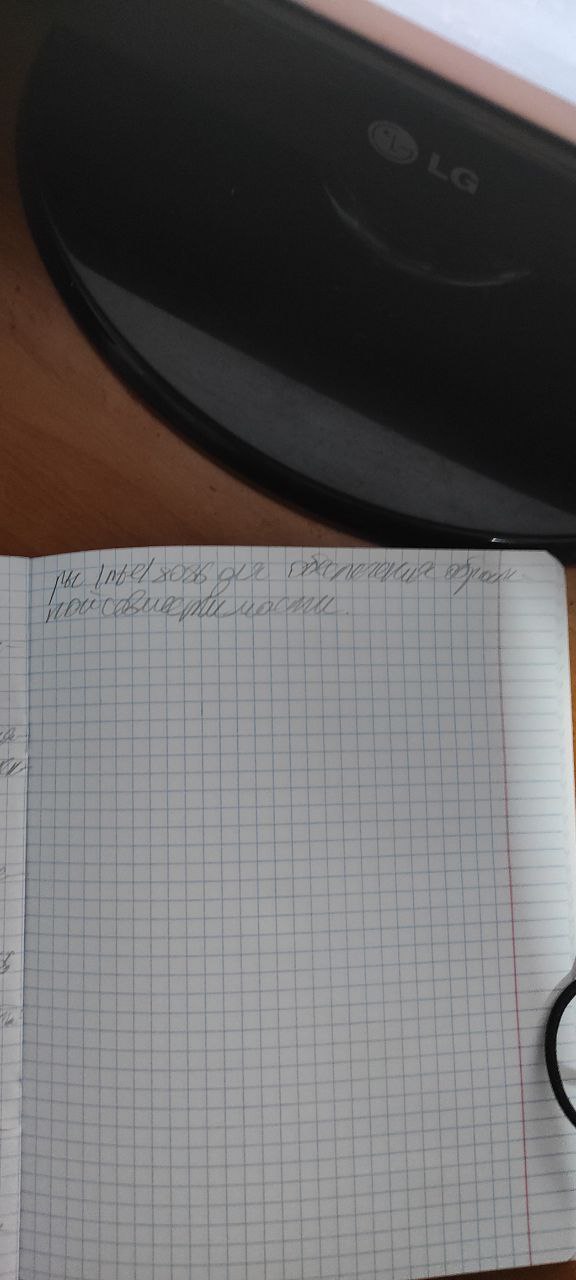 LG
ры Intel 8086 для обеспечения обрат-
ной совместимости.